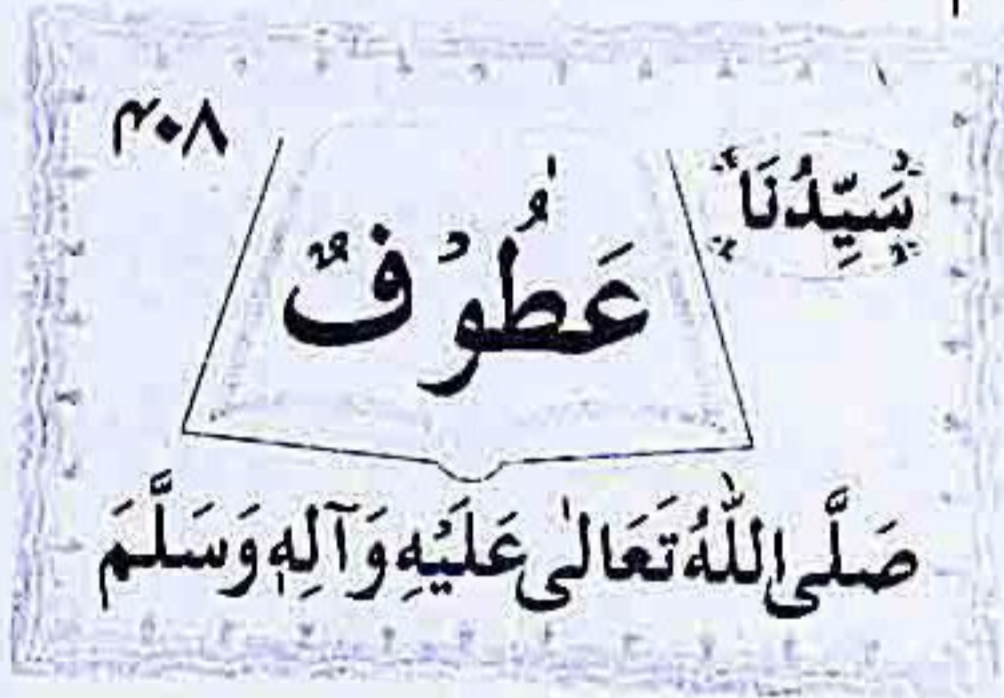 ۴۰۸
سَيِّدُنَا
عَطُوْفٌ
صَلَّى اللّٰهُ تَعَالٰى عَلَيْهِ وَآلِهٖ وَسَلَّمَ